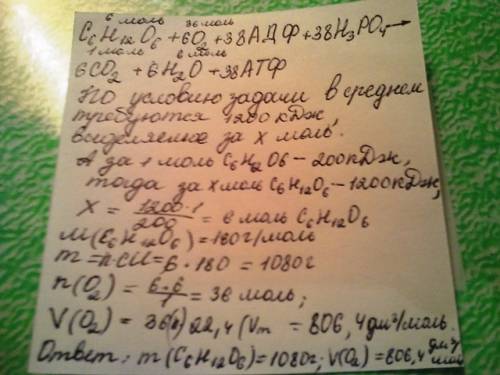 6 моль 36 моль
C6H12O6 + 6O2 + 38АДФ + 38H3PO4 →
1 моль 6 моль
6CO2 + 6H2O + 38АТФ
По условию задачи в среднем
требуются 1200 кДж,
выделяемое за x моль.
А за 1 моль C6H12O6 – 200 кДж,
тогда за x моль C6H12O6 – 1200 кДж,
x = 1200·1/200 = 6 моль C6H12O6
M(C6H12O6) = 180 г/моль
m = n·M = 6·180 = 1080 г
n(O2) = 6·6/1 = 36 моль;
V(O2) = 36(n) 22,4 (Vm = 806,4 дм³/моль.
Ответ: m(C6H12O6) = 1080 г; V(O2) = 806,4 дм³/моль